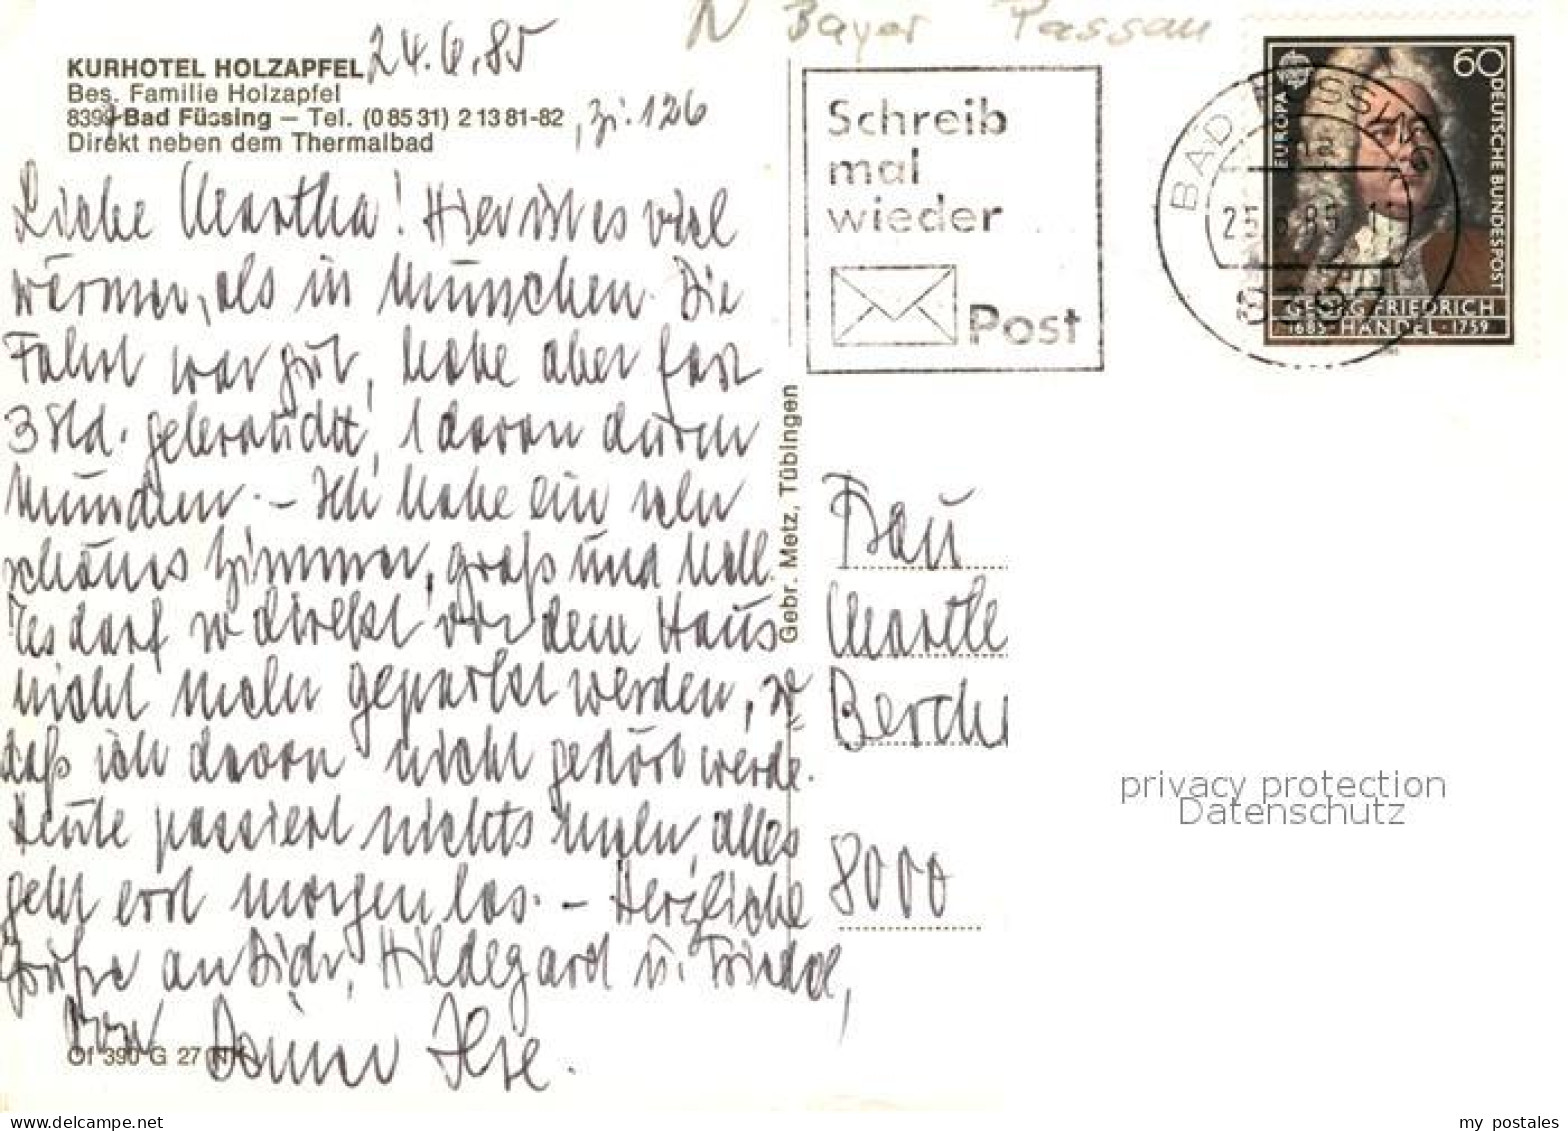 N Bayer Passau
24.6.85
KURHOTEL HOLZAPFEL
Bes. Familie Holzapfel
8399 Bad Füssing – Tel. (08531) 21381-82, Zi. 126
Direkt neben dem Thermalbad
Liebe Martha! Hier ist es viel
wärmer, als in München. Die
Fahrt war gut, habe aber fast
3 Std. gebraucht, 1 davon durch
München. – Ich habe ein sehr
schönes Zimmer, groß und hell.
Es darf direkt vor dem Haus
nicht mehr geparkt werden, so
daß ich davon nicht gestört werde.
Heute passiert nichts mehr, alles
geht erst morgen los. – Herzliche
Grüße an Dich, Hildegard u. Friedel,
von Deiner Ilse.
Of 390 G 27
Gebr. Metz, Tübingen
Schreib
mal
wieder
Post
BAD FÜSSING
25.6.85-11
8397
EUROPA
60
DEUTSCHE BUNDESPOST
GEORG FRIEDRICH
1685 HÄNDEL 1759
Frau
Marth
Berch
8000
privacy protection
Datenschutz
my postales